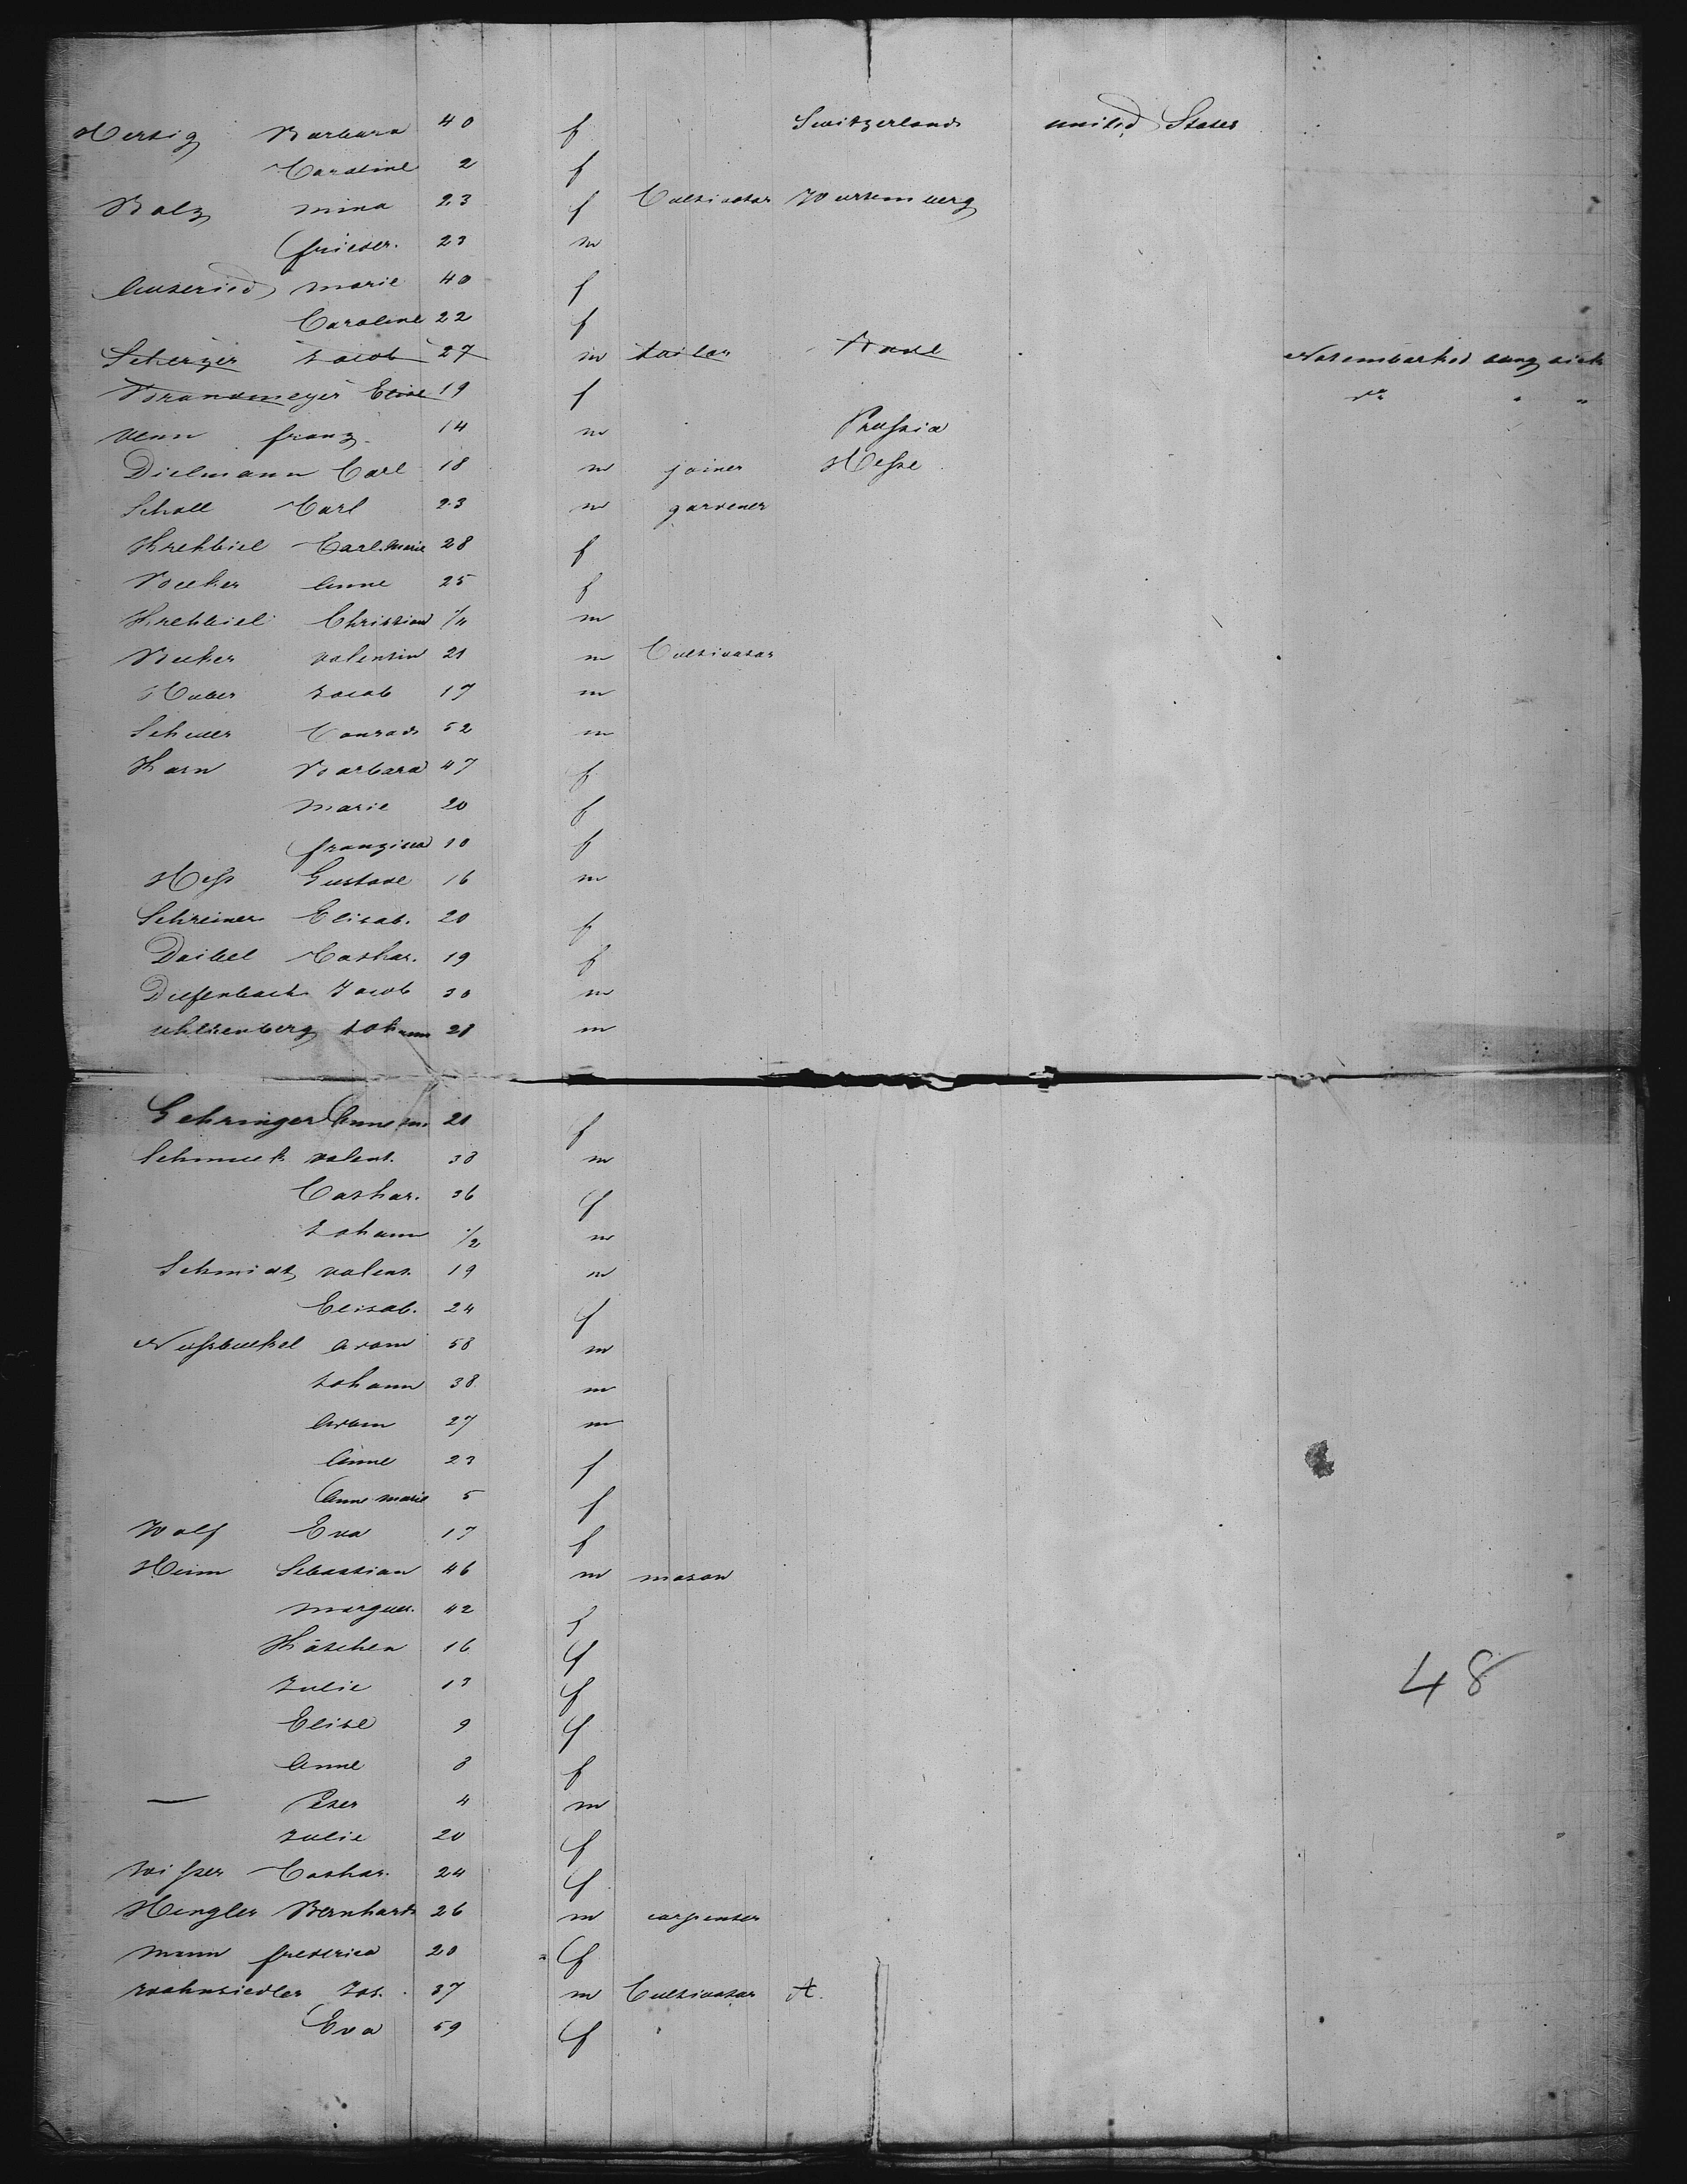 Hersig Barbara 40 f Switzerland united States
Caroline 2 f
Bolz mina 23 f Cultivator Wurtemberg
frieder. 23 m
marie 40 f
Caroline 22 f
Scherzer Jacob 27 m tailor Not embarked being sick
Brandmeyer Elise 19 f do " "
Venn franz. 14 m Prussia
Dielmann Carl 18 m joiner Hesse
Scholl Carl 23 m gardener
Krehbiel Carl. Marie 28 f
Becker Anne 25 f
Krehbiel Christian 1/4 m
Becker valentin 21 m Cultivator
Huber Jacob 17 m
Scheuer Conrad 52 m
Horn Barbara 47 f
Marie 20 f
franzisca 10 f
Hess Gustave 16 m
Schreiner Elisab. 20 f
Deibel Cathar. 19 f
Diefenbach Jacob 30 m
Johann 28 m
Gehringer Anne m. 21 f
Schmuck valent. 38 m
Cathar. 36 f
Johann 1/2 m
Schmidt valent. 19 m
Elisab. 24 f
Nussbickel Adam 58 m
Johann 38 m
Adam 27 m
Anne 23 f
Anne marie 5 f
Wolf Eva 17 f
Heim Sebastian 46 m mason
Margar. 42 f
Käthchen 16 f
Julie 13 f
48
Elise 9 f
Anne 8 f
— Peter 4 m
Julie 20 f
Wisser Cathar. 24 f
Hengler Bernhard 26 m carpenter
Mann frederica 20 f
Wahnsiedler Jos. 37 m Cultivator A.
Eva 59 f